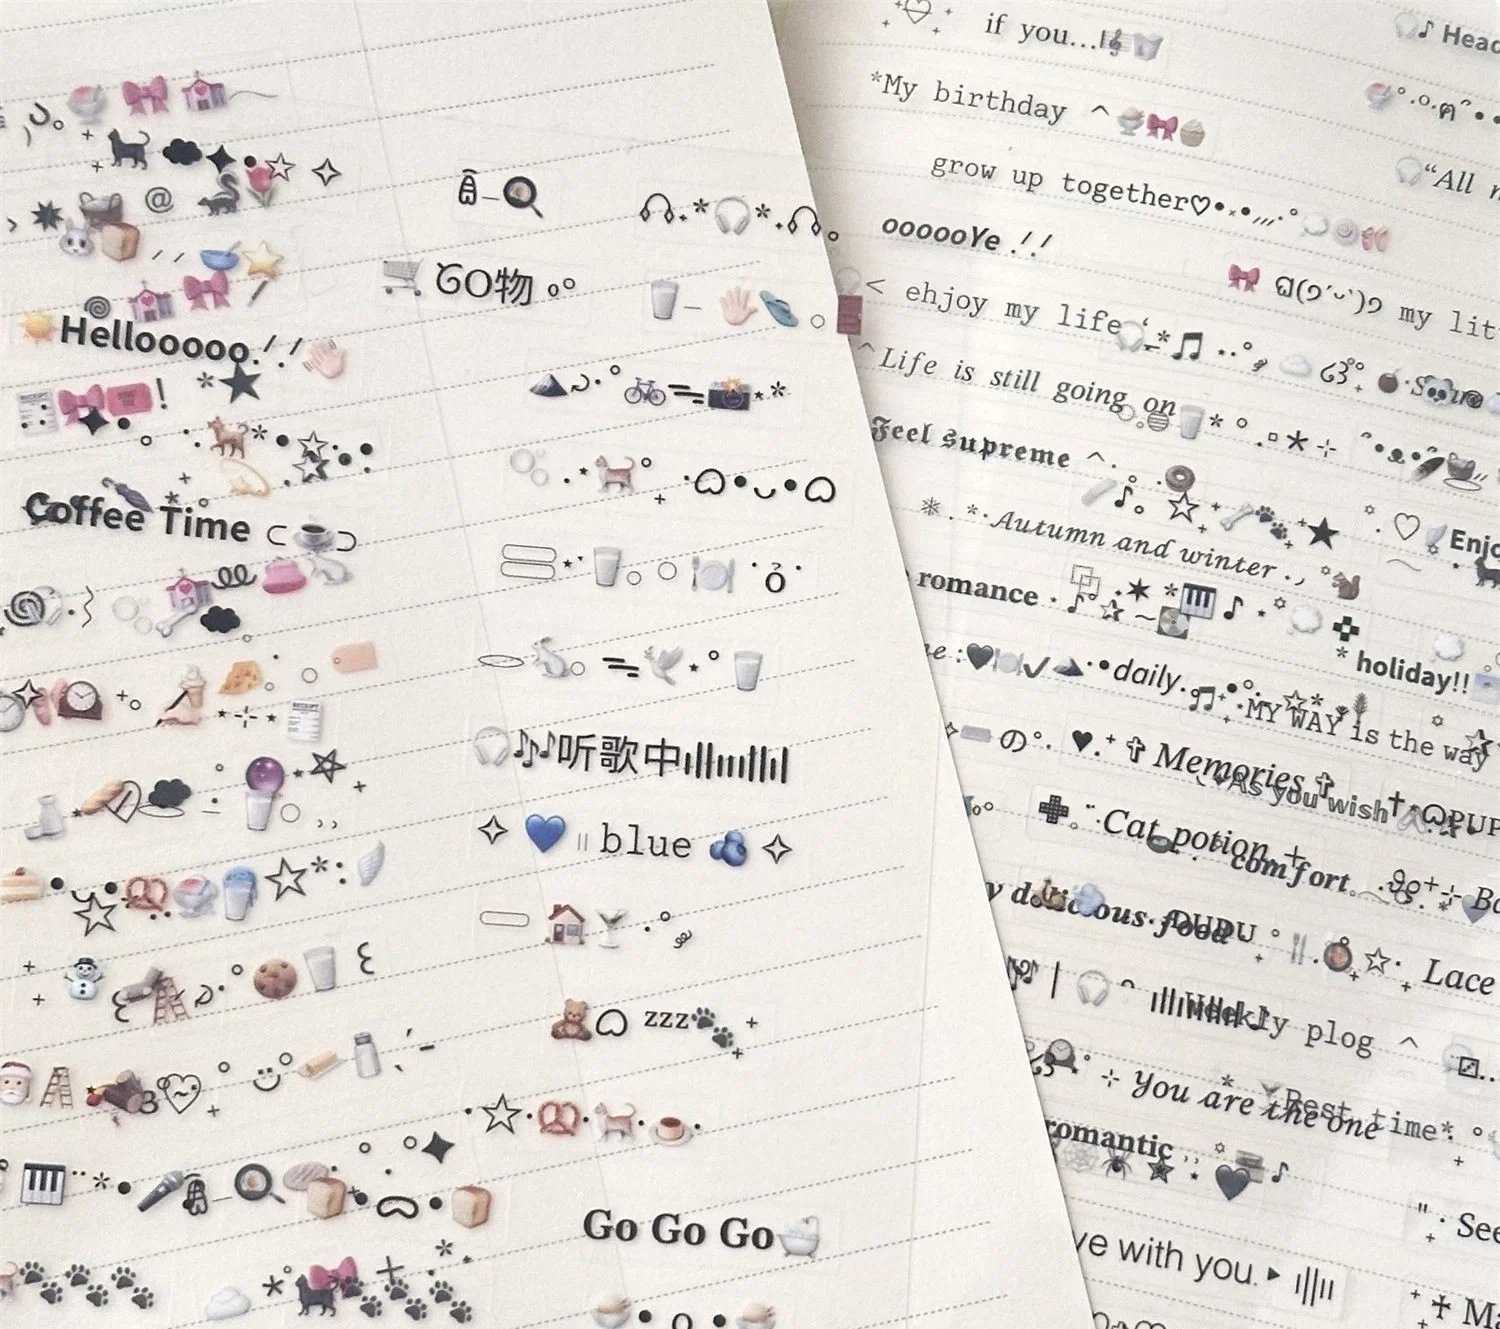 Hellooooo.!!
Coffee Time
GO物
听歌中
blue
zzz
Go Go Go
if you...
*My birthday ^
grow up together♡
oooooYe.!!
my
< ehjoy my life
^Life is still going on
Feel supreme ^.
*.Autumn and winter.,
romance
daily.
holiday!!
MY WAY is the way
の
✞ Memories ✞
As you wish
Cat potion +
comfort
food
DUPU
Lace
Weekly plog ^
You are the one
Best time*
romantic
with you.
"All